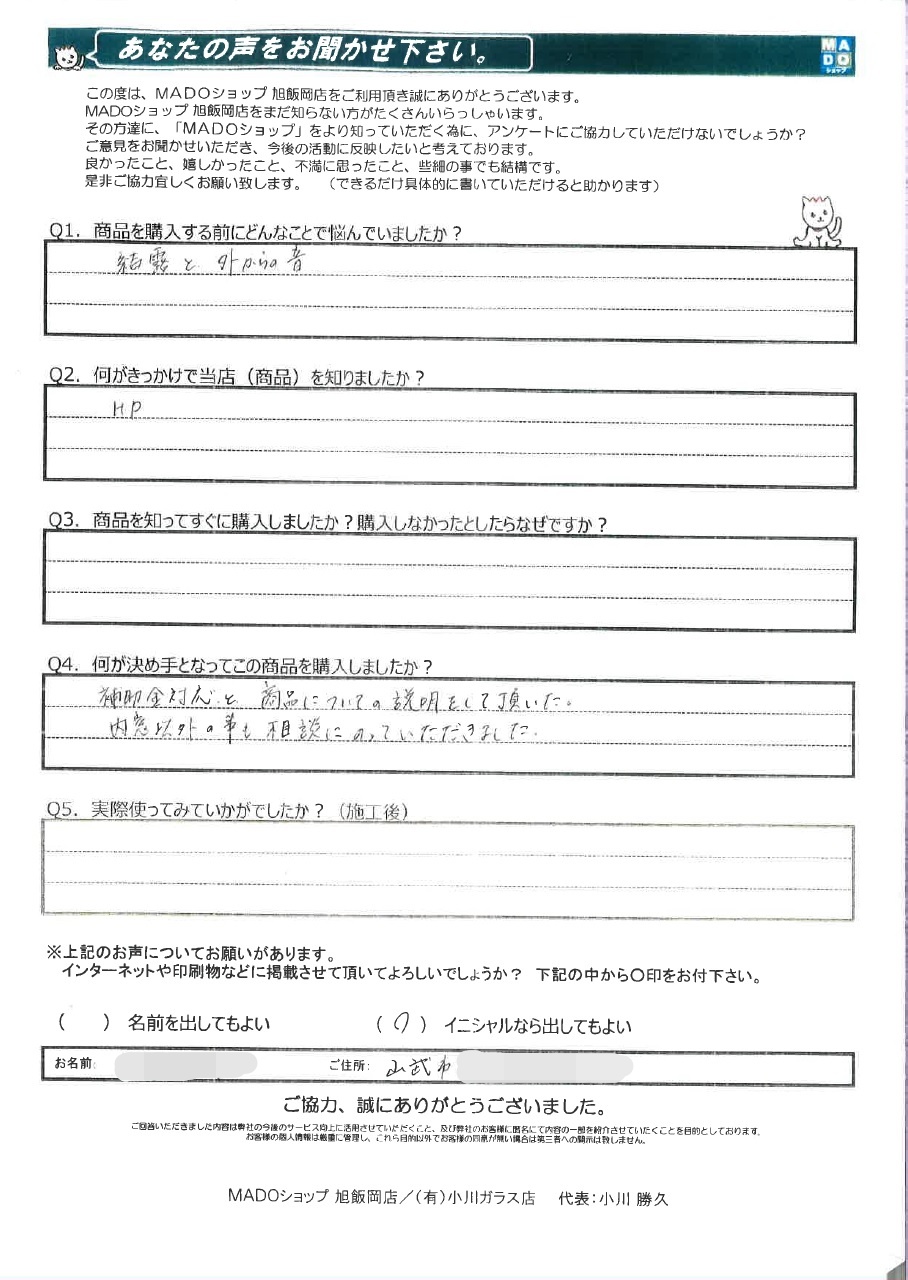 あなたの声をお聞かせ下さい。
MADO
ショップ
この度は、MADOショップ 旭飯岡店をご利用頂き誠にありがとうございます。
MADOショップ 旭飯岡店をまだ知らない方がたくさんいらっしゃいます。
その方達に、「MADOショップ」をより知っていただく為に、アンケートにご協力していただけないでしょうか？
ご意見をお聞かせいただき、今後の活動に反映したいと考えております。
良かったこと、嬉しかったこと、不満に思ったこと、些細の事でも結構です。
是非ご協力宜しくお願い致します。　（できるだけ具体的に書いていただけると助かります）
Q1．商品を購入する前にどんなことで悩んでいましたか？
結露と、外からの音
Q2．何がきっかけで当店（商品）を知りましたか？
HP
Q3．商品を知ってすぐに購入しましたか？購入しなかったとしたらなぜですか？
Q4．何が決め手となってこの商品を購入しましたか？
補助金対応と、商品についての説明をして頂いた。
内窓以外の事も相談にのっていただきました。
Q5．実際使ってみていかがでしたか？（施工後）
※上記のお声についてお願いがあります。
インターネットや印刷物などに掲載させて頂いてよろしいでしょうか？　下記の中から〇印をお付下さい。
（　　）名前を出してもよい　（○）イニシャルなら出してもよい
お名前:　ご住所: 山武市
ご協力、誠にありがとうございました。
ご回答いただきました内容は弊社の今後のサービス向上に活用させていただくこと、及び弊社のお客様に匿名にて内容の一部を紹介させていたくことを目的としております。
お客様の個人情報は厳重に管理し、これら目的以外でお客様の同意が無い場合は第三者への開示は致しません。
MADOショップ 旭飯岡店／（有）小川ガラス店　代表：小川 勝久